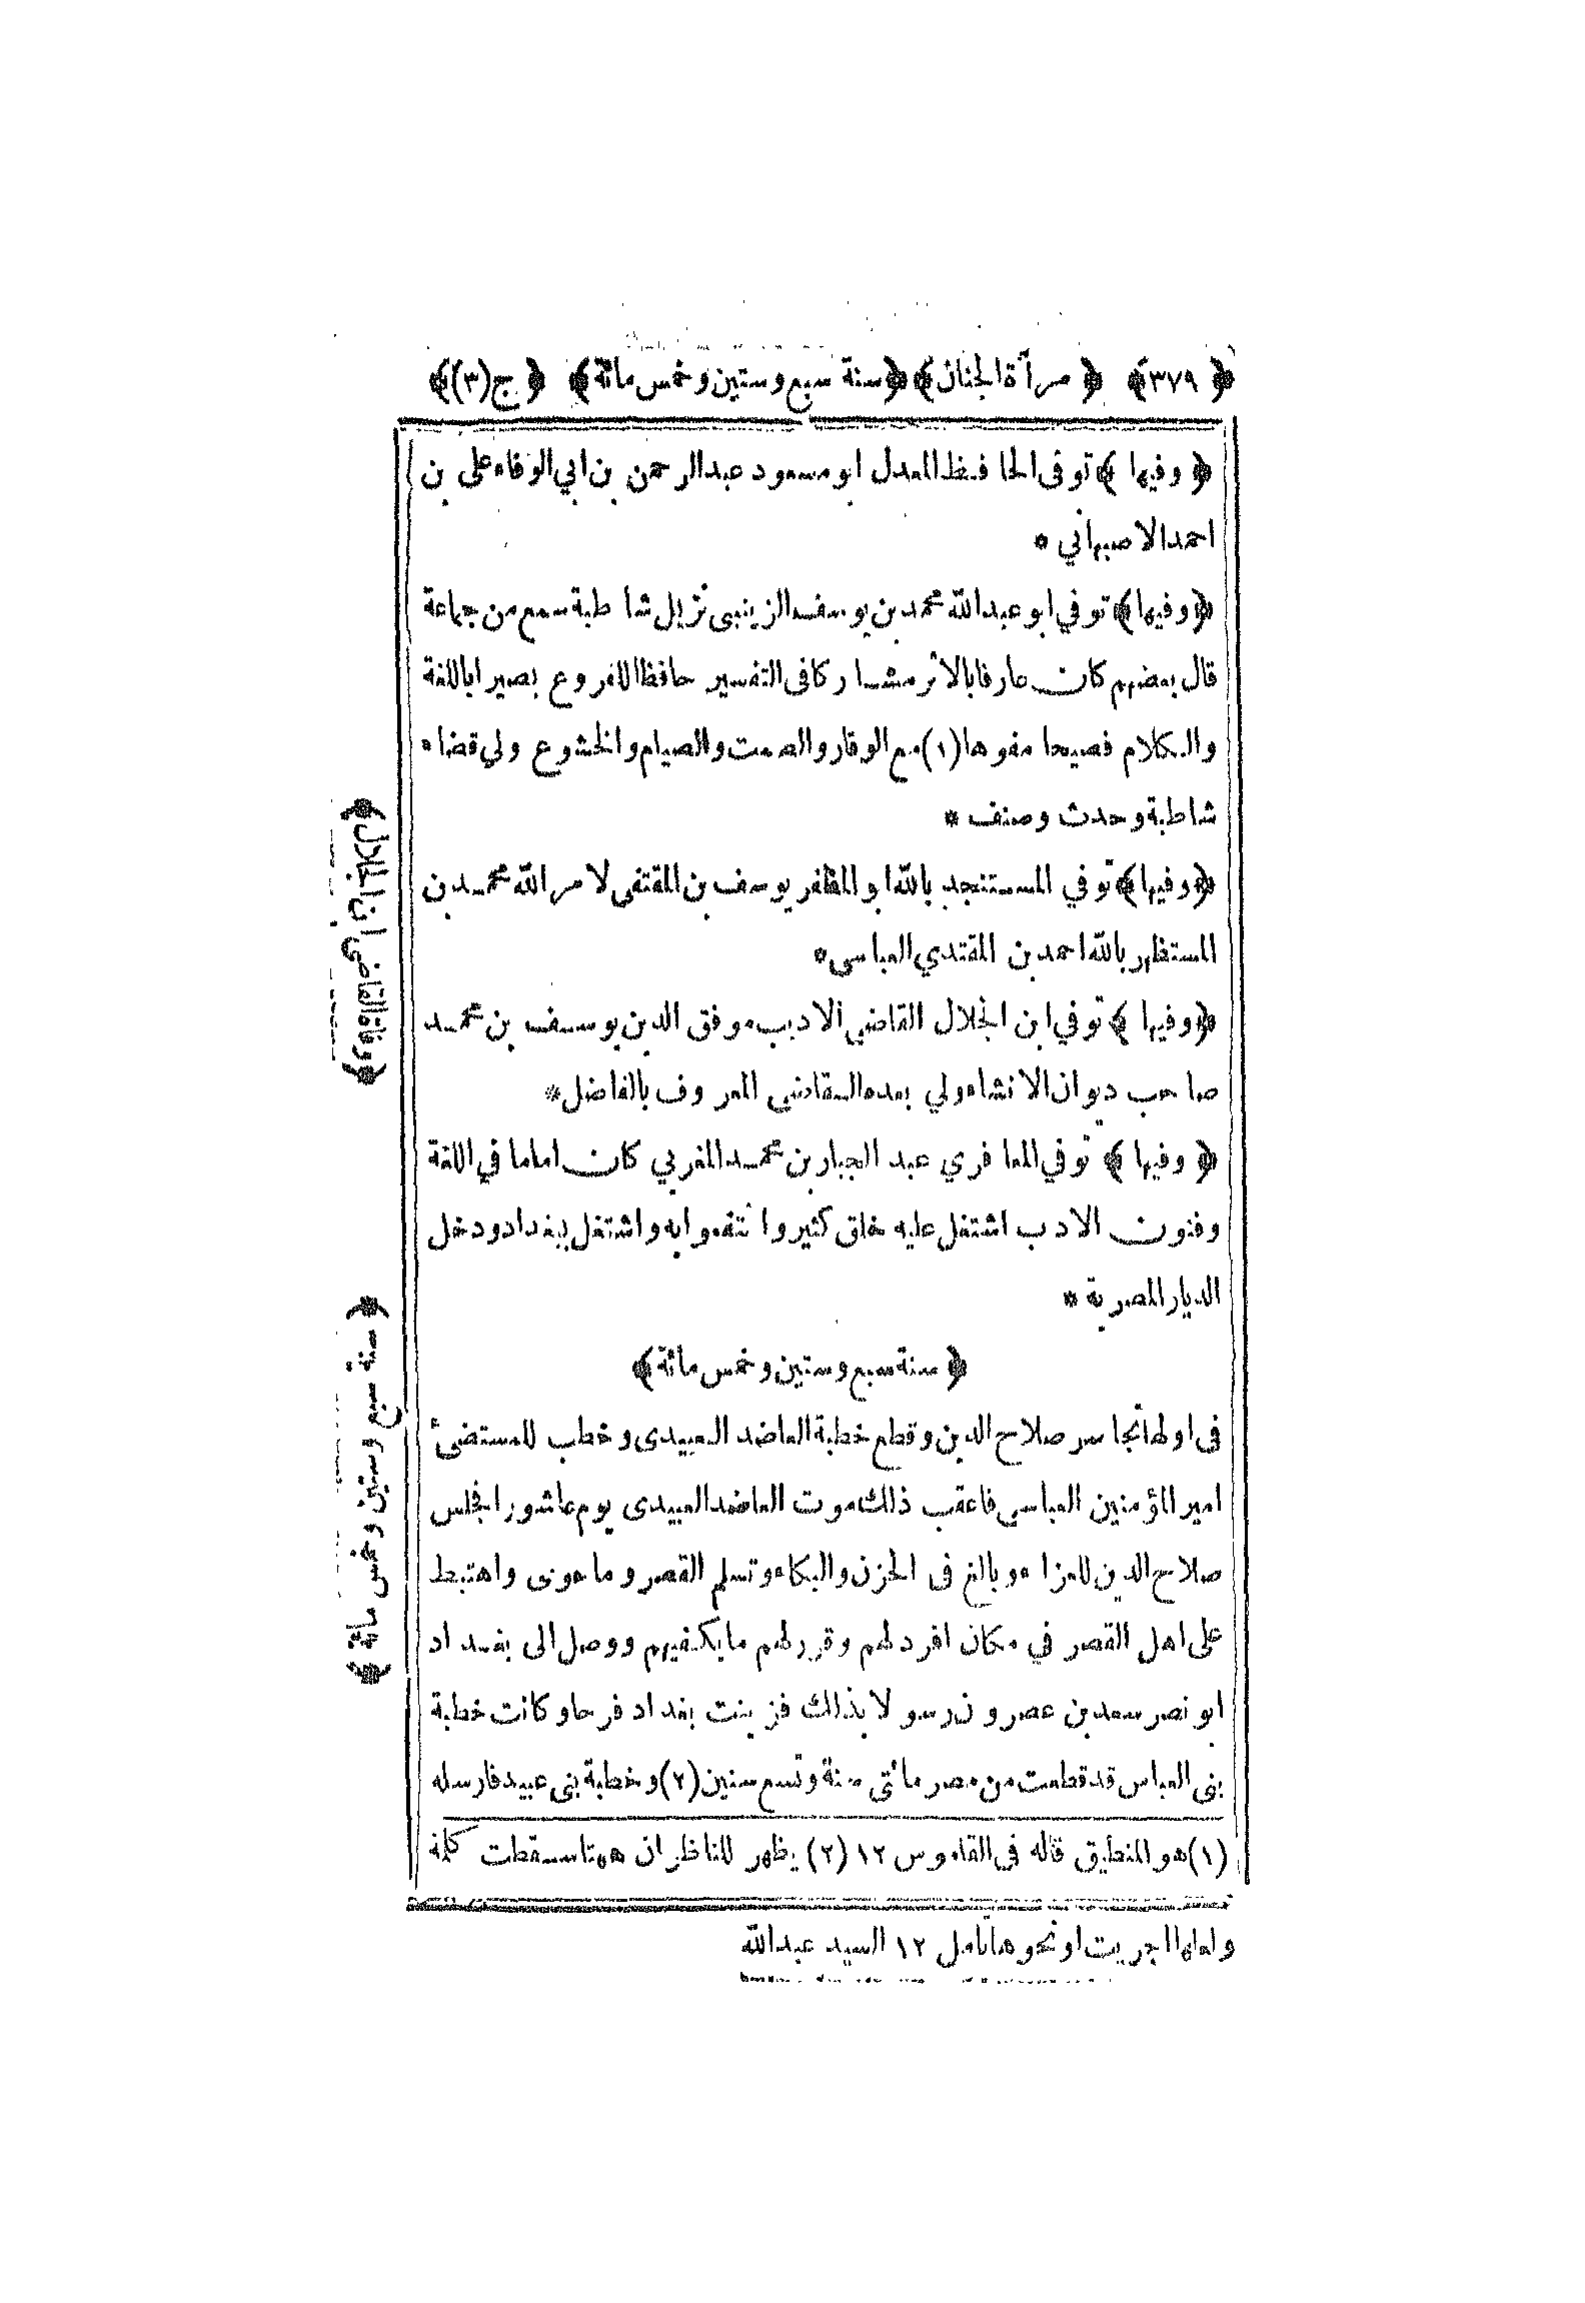 ﴿ ٣٧٩ ﴾ ﴿ مرآة الجنان ﴾ ﴿ سنة سبع وستين وخمس مائة ﴾ ﴿ ج (٣) ﴾
﴿ وفيها ﴾ توفى الحافظ المعدل ابو مسعود عبد الرحمن بن ابي الوفاء على بن
احمد الاصبهاني *
﴿ وفيها ﴾ توفي ابو عبد الله محمد بن يوسف الزينبى نزيل شاطبة سمع من جماعة
قال بعضهم كان عارفا بالاثر مشاركا فى التفسير حافظا للفروع بصيرا باللغة
والكلام فصيحا مفوها (١) مع الوقار والصمت والصيام والخشوع ولي قضاء
شاطبة وحدث وصنف *
﴿ وفيها ﴾ توفي المستنجد بالله ابو المظفر يوسف بن المقتفى لامر الله محمد بن
المستظهر بالله احمد بن المقتدي العباسى *
﴿ وفيها ﴾ توفي ابن الخلال القاضي الاديب موفق الدين يوسف بن محمد
صاحب ديوان الانشاء ولي بعده القاضي المعروف بالفاضل *
﴿ وفيها ﴾ توفي المعافري عبد الجبار بن محمد المغربي كان اماما في اللغة
وفنون الادب اشتغل عليه خلق كثير وانتفعوا به واشتغل ببغداد ودخل
الديار المصرية *
﴿ سنة سبع وستين وخمس مائة ﴾
فى اولها تجاسر صلاح الدين وقطع خطبة العاضد العبيدى وخطب للمستضئ
امير المؤمنين العباسي فاعقب ذلك موت العاضد العبيدى يوم عاشورا فجلس
صلاح الدين للعزاء وبالغ فى الحزن والبكاء وتسلم القصر وما حوى واحتيط
على اهل القصر في مكان افرد لهم وقرر لهم ما يكفيهم ووصل الى بغداد
ابو نصر سعد بن عصرون رسولا بذلك فزينت بغداد فرحا وكانت خطبة
بنى العباس قد قطعت من مصر مائتى سنة وتسع سنين (٢) وخطبة بنى عبيد فارسله
(١) هو المنطيق قاله فى القاموس ١٢ (٢) يظهر للناظر ان ههنا سقطت كلمة
ولعلها اجريت او نحوها تامل ١٢ السيد عبد الله
﴿ وفاة القاضي ابن الخلال ﴾
﴿ سنة سبع وستين وخمس مائة ﴾